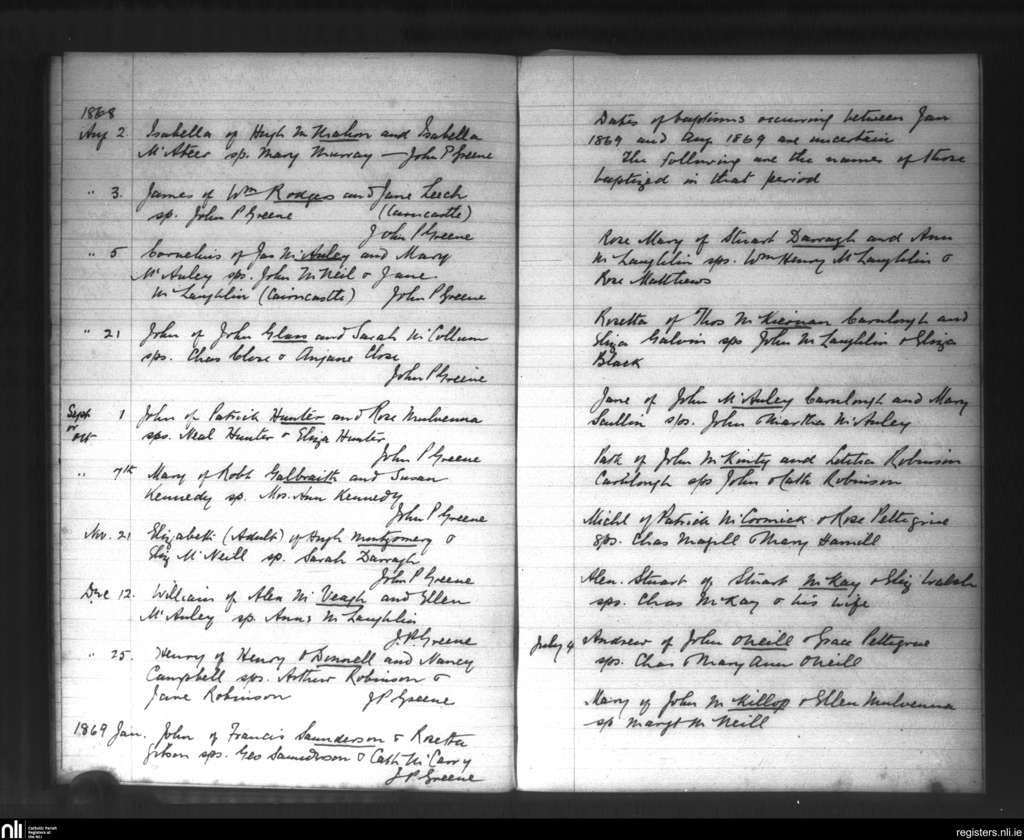 1868
Aug 2. Isabella of Hugh McMahon and Isabella
McAteer sp. Mary Murray — John P Greene
" 3. James of Wm Rodgers and Jane Leech
sp. John P Greene (Cairncastle)
John P Greene
" 5 Cornelius of Jas McAuley and Mary
McAuley sps. John McNeil & Jane
McLaughlin (Cairncastle) John P Greene
" 21 John of John Glass and Sarah McCollum
sps. Chas Close & Anjane Close
John P Greene
Sept or Oct 1 John of Patrick Hunter and Rose Mulvenna
sps. Neal Hunter & Eliza Hunter
John P Greene
" 7th Mary of Robt Galbraith and Susan
Kennedy sp. Mrs. Ann Kennedy
John P Greene
Nov. 21 Elizabeth (Adult) of Hugh Montgomery &
Eliz McNeill sp. Sarah Darragh
John P Greene
Dec 12. William of Alex McVeagh and Ellen
McAuley sp. Anns McLaughlin
J.P. Greene
" 25. Henry of Henry O'Donnell and Nancy
Campbell sps. Arthur Robinson &
Jane Robinson J P Greene
1869 Jan. John of Francis Saunderson & Rosetta
Gibson sps. Geo Saunderson & Cath McCarry
J P Greene
Dates of baptisms occurring between Jan
1869 and Aug 1869 are uncertain
The following are the names of those
baptized in that period
Rose Mary of Stuart Darragh and Ann
McLaughlin sps. Wm Henry McLaughlin &
Rose Matthews
Rosetta of Thos McKiernan Carnlough and
Eliza Galvin sps John McLaughlin & Eliza
Black
Jane of John McAuley Carnlough and Mary
Scullin sps. John & Martha McAuley
Patk of John McKinty and Letitia Robinson
Carnlough sps John & Cath Robinson
Michl of Patrick McCormick & Rose Pettigrue
sps. Chas Magill & Mary Hamill
Alex. Stuart of Stuart McKay & Eliz Walsh
sps. Chas McKay & his wife
July 4 Andrew of John O'Neill & Grace Pettigrue
sps. Chas & Mary Ann O'Neill
Mary of John McKillop & Ellen Mulvenna
sp. Margt McNeill
nli Catholic Parish
Registers at
the NLI
registers.nli.ie